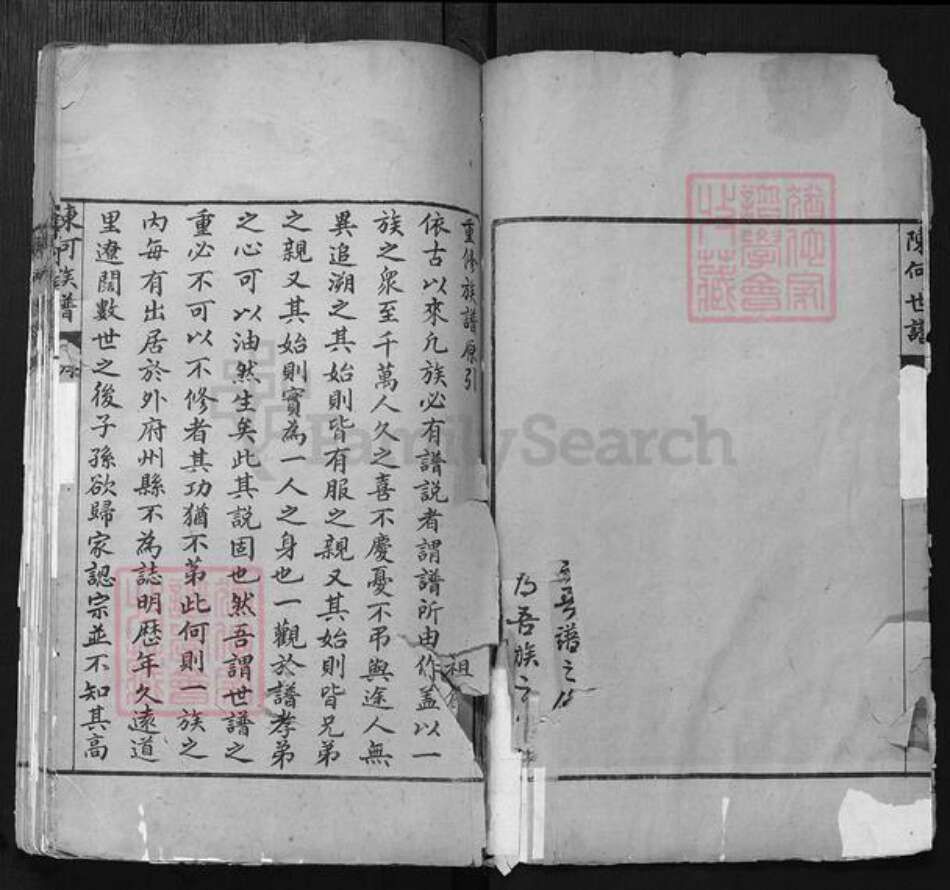 陳何世譜
譜之
吾族之
重修族譜原引
依古以來凢族必有譜説者謂譜所由作盖以一
族之衆至千萬人久之喜不慶憂不弔與途人無
異追溯之其始則皆有服之親又其始則皆兄弟
之親又其始則實為一人之身也一觀於譜孝弟
之心可以油然生矣此其説固也然吾謂世譜之
重必不可以不修者其功猶不第此何則一族之
内每有出居於外府州縣不為誌明歴年久遠道
里遼闊數世之後子孫欲歸家認宗並不知其高
祖
族譜
FamilySearch